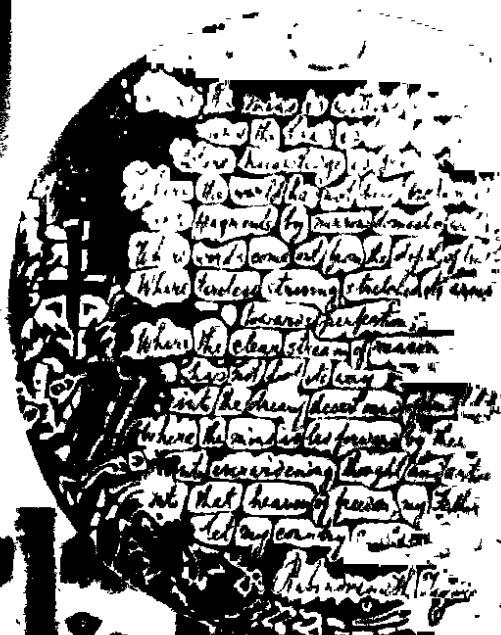 the mind is without
and the head
Where knowledge is free
Where the world has not been broken
into fragments by narrow domestic
Where words come out from the depth of
Where tireless striving stretches its arms
towards perfection
Where the clear stream of reason
has not lost its way
into the dreary desert sand
Where the mind is led forward by thee
into everwidening thought and action
into that heaven of freedom my Father
let my country
Rabindranath